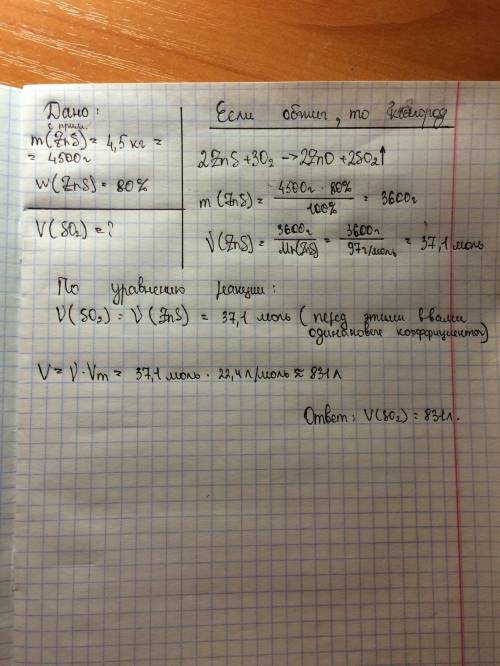 Дано:
с прим.
m(ZnS) = 4,5 кг =
= 4500г
W(ZnS) = 80%
V(SO₂) = ?
Если обжиг, то кислород
2ZnS + 3O₂ → 2ZnO + 2SO₂↑
m(ZnS) = 4500г · 80% / 100% = 3600г
ν(ZnS) = 3600г / Mr(ZnS) = 3600г / 97г/моль = 37,1 моль
По уравнению реакции:
ν(SO₂) = ν(ZnS) = 37,1 моль (перед этими в-вами
одинаковые коэффициенты)
V = ν · Vm = 37,1 моль · 22,4 л/моль ≈ 831 л
Ответ: V(SO₂) = 831л.